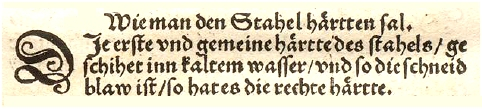 Wie man den Stahel härtten sal.
DJe erste vnd gemeine härtte des stahels/ ge
schihet inn kaltem wasser/ vnd so die schneid
blaw ist/ so hat es die rechte härtte.